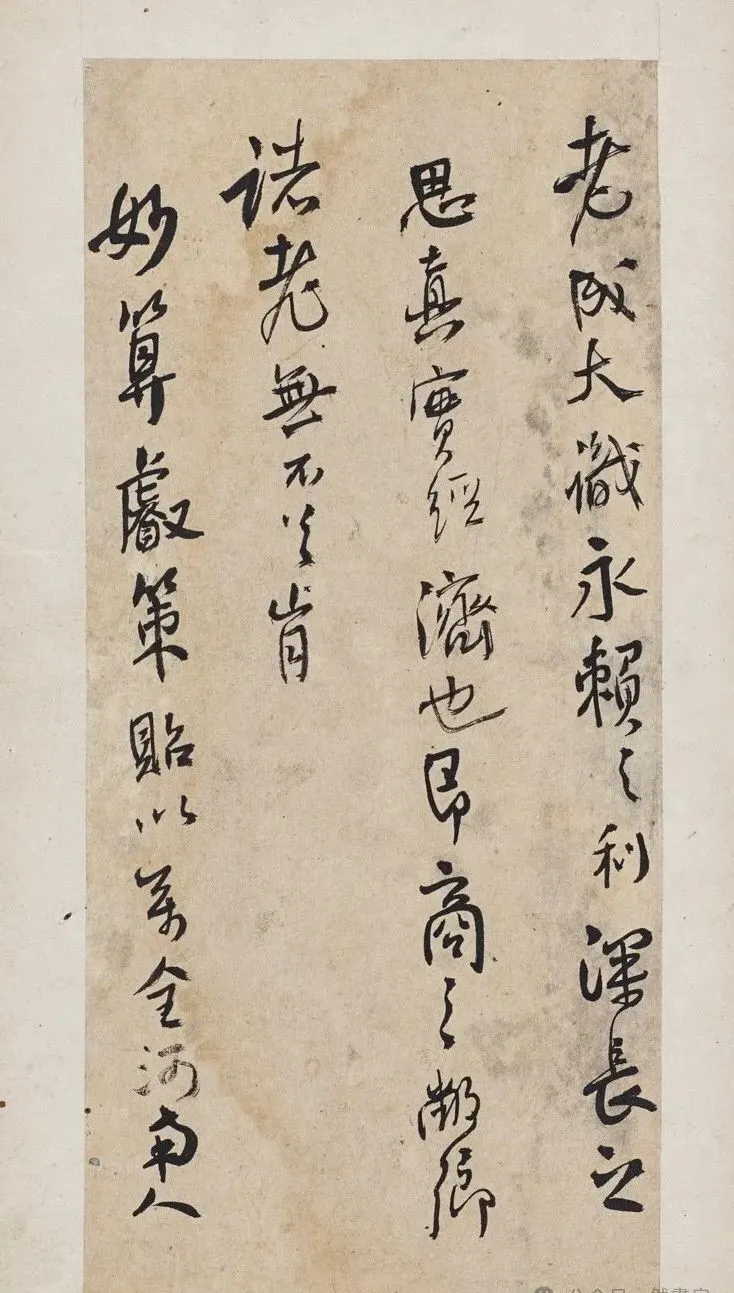 老成大識永賴之利深長之
思真實經濟也即商之敝鄉
諸老無不首肯
妙算叡策貽以萬全河南人